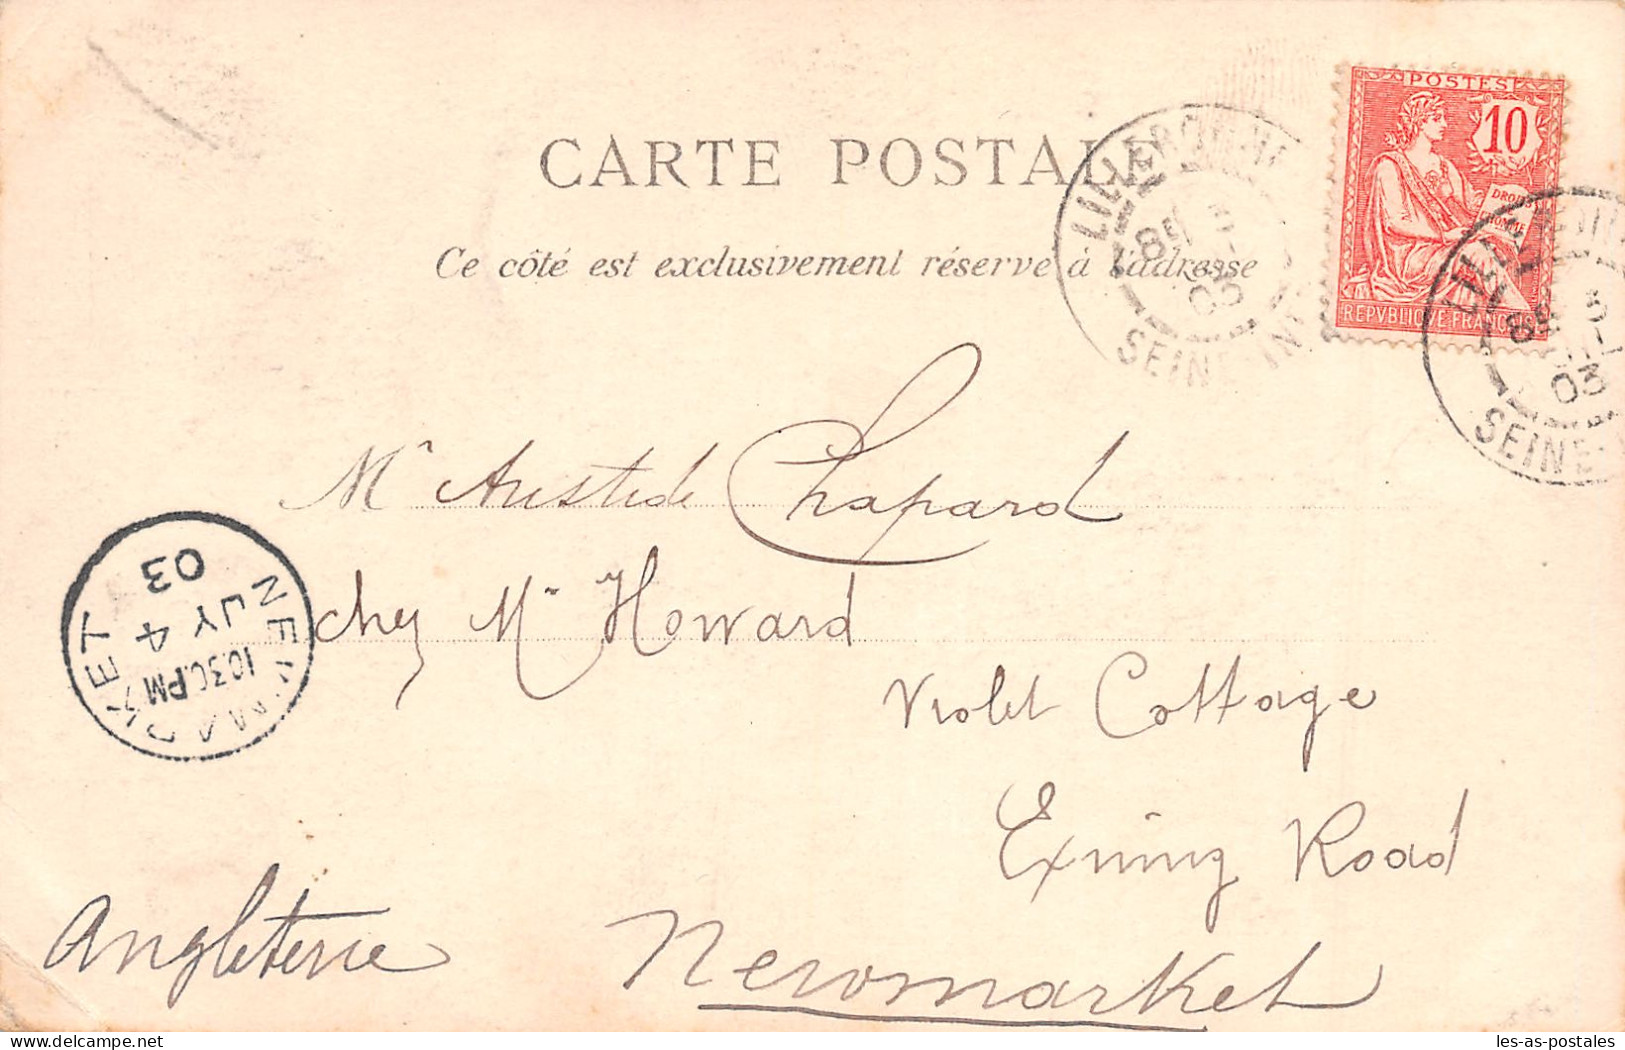 CARTE POSTALE
Ce côté est exclusivement réservé à l'adresse
POSTES
10
DROITS
HOMME
REPVBLIQVE FRANÇAISE
LILLEBONNE
3
03
SEINE-INF
LILLEBONNE
3
03
SEINE
Mr Aristide Chapard
chez Mr Howard
Violet Cottage
Exning Road
Newmarket
Angleterre
NEWMARKET
10.30.PM
JY 4
03
les-as-postales